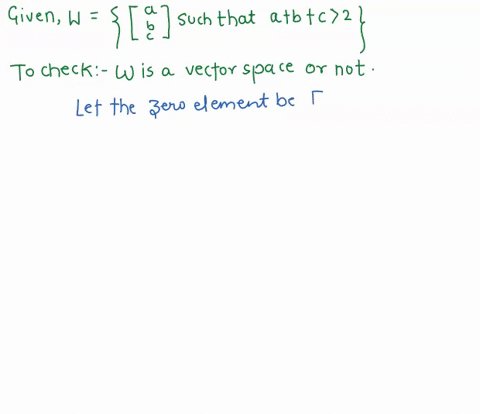 Given, W = { [a b c] such that a+b+c>2 }
To check:- W is a vector space or not.
Let the zero element be [